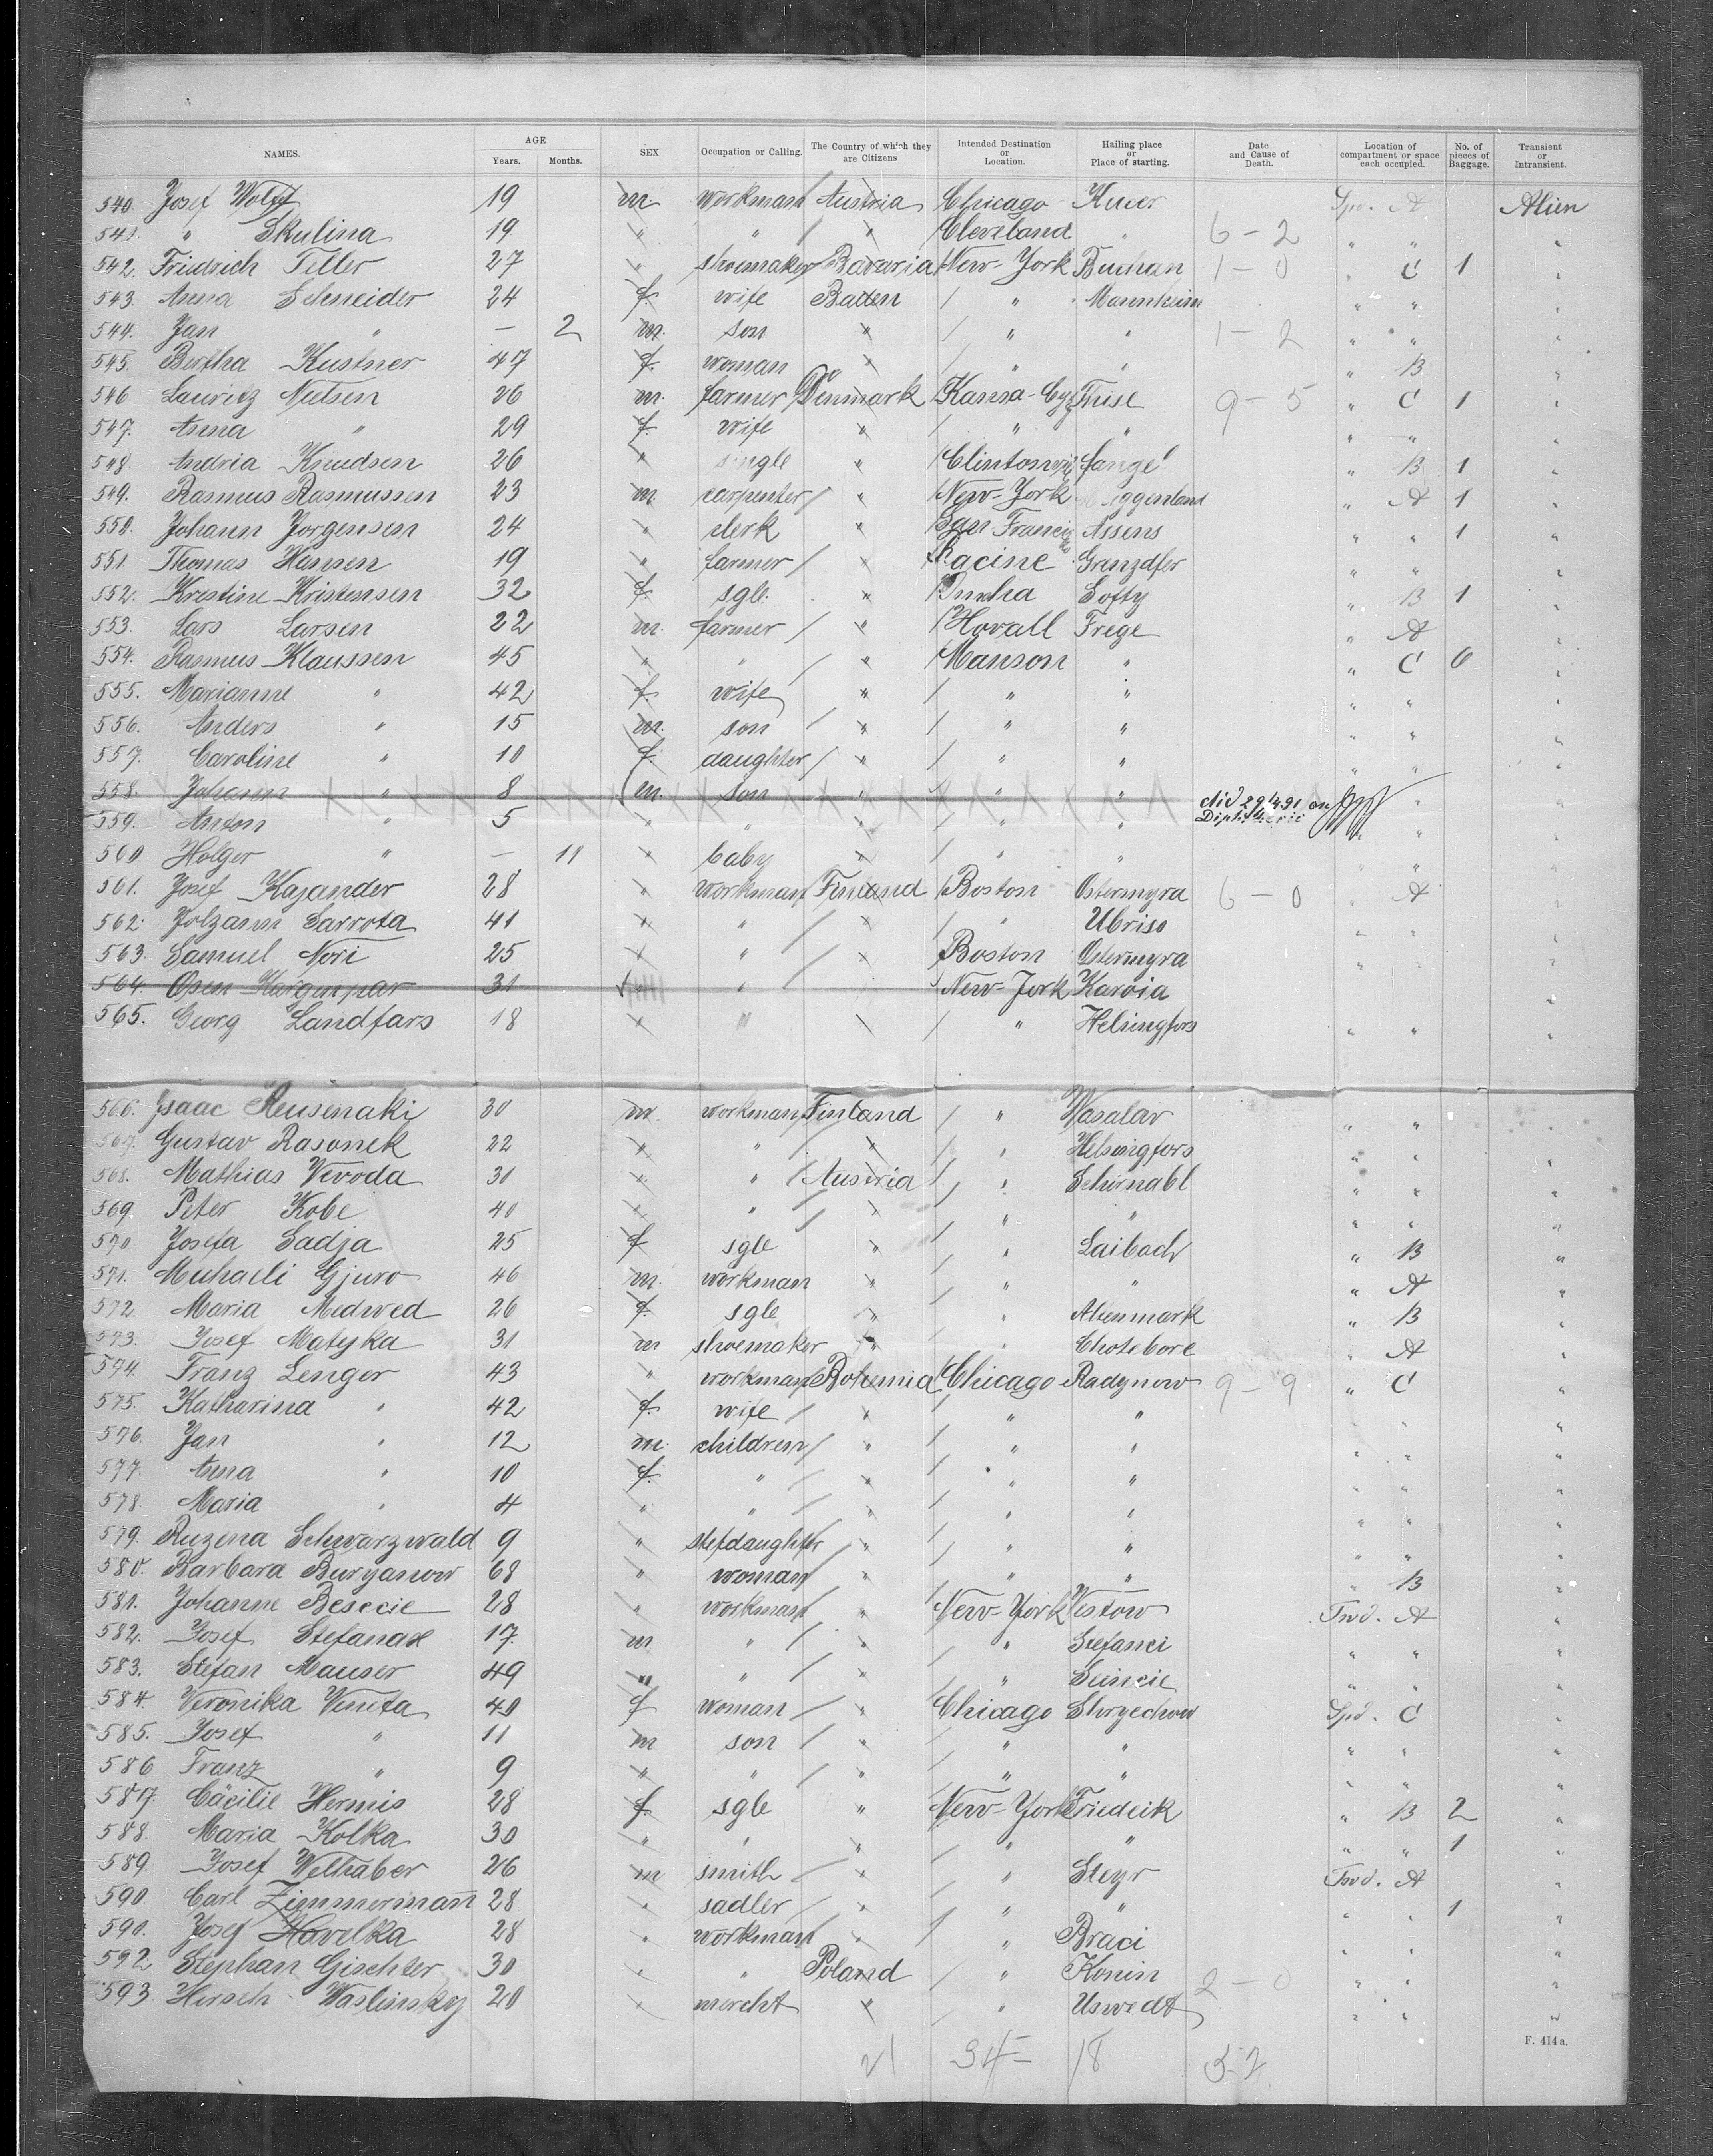 NAMES. AGE Years. Months. SEX Occupation or Calling. The Country of which they are Citizens Intended Destination or Location. Hailing place or Place of starting. Date and Cause of Death. Location of compartment or space each occupied. No. of pieces of Baggage. Transient or Intransient.
540. Josef Wolff 19 m. workman Austria Chicago Spd. A Alien
541. " Skulina 19 " " " Cleveland " 6-2 " " "
542. Fridrich Teller 27 " shoemaker Bavaria New-York Buchan 1-0 " C 1 "
543. Anna Schneider 24 f. wife Baden " Mannheim " " "
544. Jan " - 2 m. son " " " 1-2 " " "
545. Bertha Kustner 47 f. woman " " " " B "
546 Lauritz Nielsen 26 m. farmer Denmark Thise 9-5 " C 1 "
547. Anna " 29 f. wife " " " " " "
548. Andria Knudsen 26 " single " " B 1 "
549. Rasmus Rasmussen 23 m carpenter " New-York " A 1 "
550. Johann Jorgensen 24 " clerk " San Francisco Assens " " 1 "
551. Thomas Hansen 19 " farmer " Racine " " "
552. Krestine Kristensen 32 f. sgle. " Softy " B 1 "
553. Lars Larsen 22 m. farmer " Hovall Frege " A "
554. Rasmus Klaussen 45 " " " Manson " " C 6 "
555. Marianne " 42 f. wife " " " " " "
556. Anders " 15 m. son " " " " " "
557. Caroline " 10 f. daughter " " " " " "
558. Johann " 8 m. son " " " did 29/4.91 on "
559. Anton " 5 " " " " " Diphtherie " "
560 Holger " - 11 " baby " " " " " "
561. Josef Kajander 28 " workman Finland Boston Ostermyra 6-0 " A "
562. Sarrota 41 " " " " Ubriso " " "
563. Samuel Nori 25 " " " Boston Ostermyra " " "
564. 31 " " New-York Karvia "
565. Georg Landfars 18 " " " Helsingfors " " "
566. Isaac 30 m. workman Finland " Wasalav " " "
567. Gustav Rasonek 22 " " " " Helsingfors " " "
568. Mathias Vevoda 31 " " Austria " " " "
569. Peter Kobe 40 " " " " " " " "
570 Josefa Sadja 25 f sgle " " Laibach " B "
571. Michaeli Gjuro 46 m. workman " " " " A "
572. Maria Medwed 26 f. sgle " " Altenmark " B "
573. Josef Matejka 31 m shoemaker " " Chotebore " A "
574. Franz Lenger 43 " workman Bohemia Chicago Radynow 9-9 " C "
575. Katharina " 42 f. wife " " " " " "
576. Jan " 12 m. children " " " " " "
577. Anna " 10 f. " " " " " " "
578. Maria " 4 " " " " " " " "
579. Ruzena Schwarzwald 9 " stefdaughter " " " " " "
580. Barbara Buryanow 68 " woman " " " " B "
581. Johanne Besecie 28 " workman " New-York Vestow Twd. A "
582. Josef Stefanax 17. m " " " Stefanci " " "
583. Stefan Mauser 49 " " " " " " "
584. Veronika 40 f woman " Chicago Spd. C "
585. Josef " 11 m son " " " " " "
586 Franz " 9 " " " " " " " "
587. Cäcilie Hermis 28 f. sgle " New-York " B 2 "
588. Maria Kolka 30 " " " " " " " 1 "
589. Josef Welhaber 26 m smith " " Steyr Twd. A "
590 Carl Zimmermann 28 " sadler " " " " " 1 "
590. Josef Havelka 28 " workman " " Braci " " "
592 Stephan Gischter 30 " " Poland " Konin 2-0 " " "
593 Hirsch Waslinsky 20 " mercht " " Uswedt " " "
F. 414 a.
21 34- 18 52